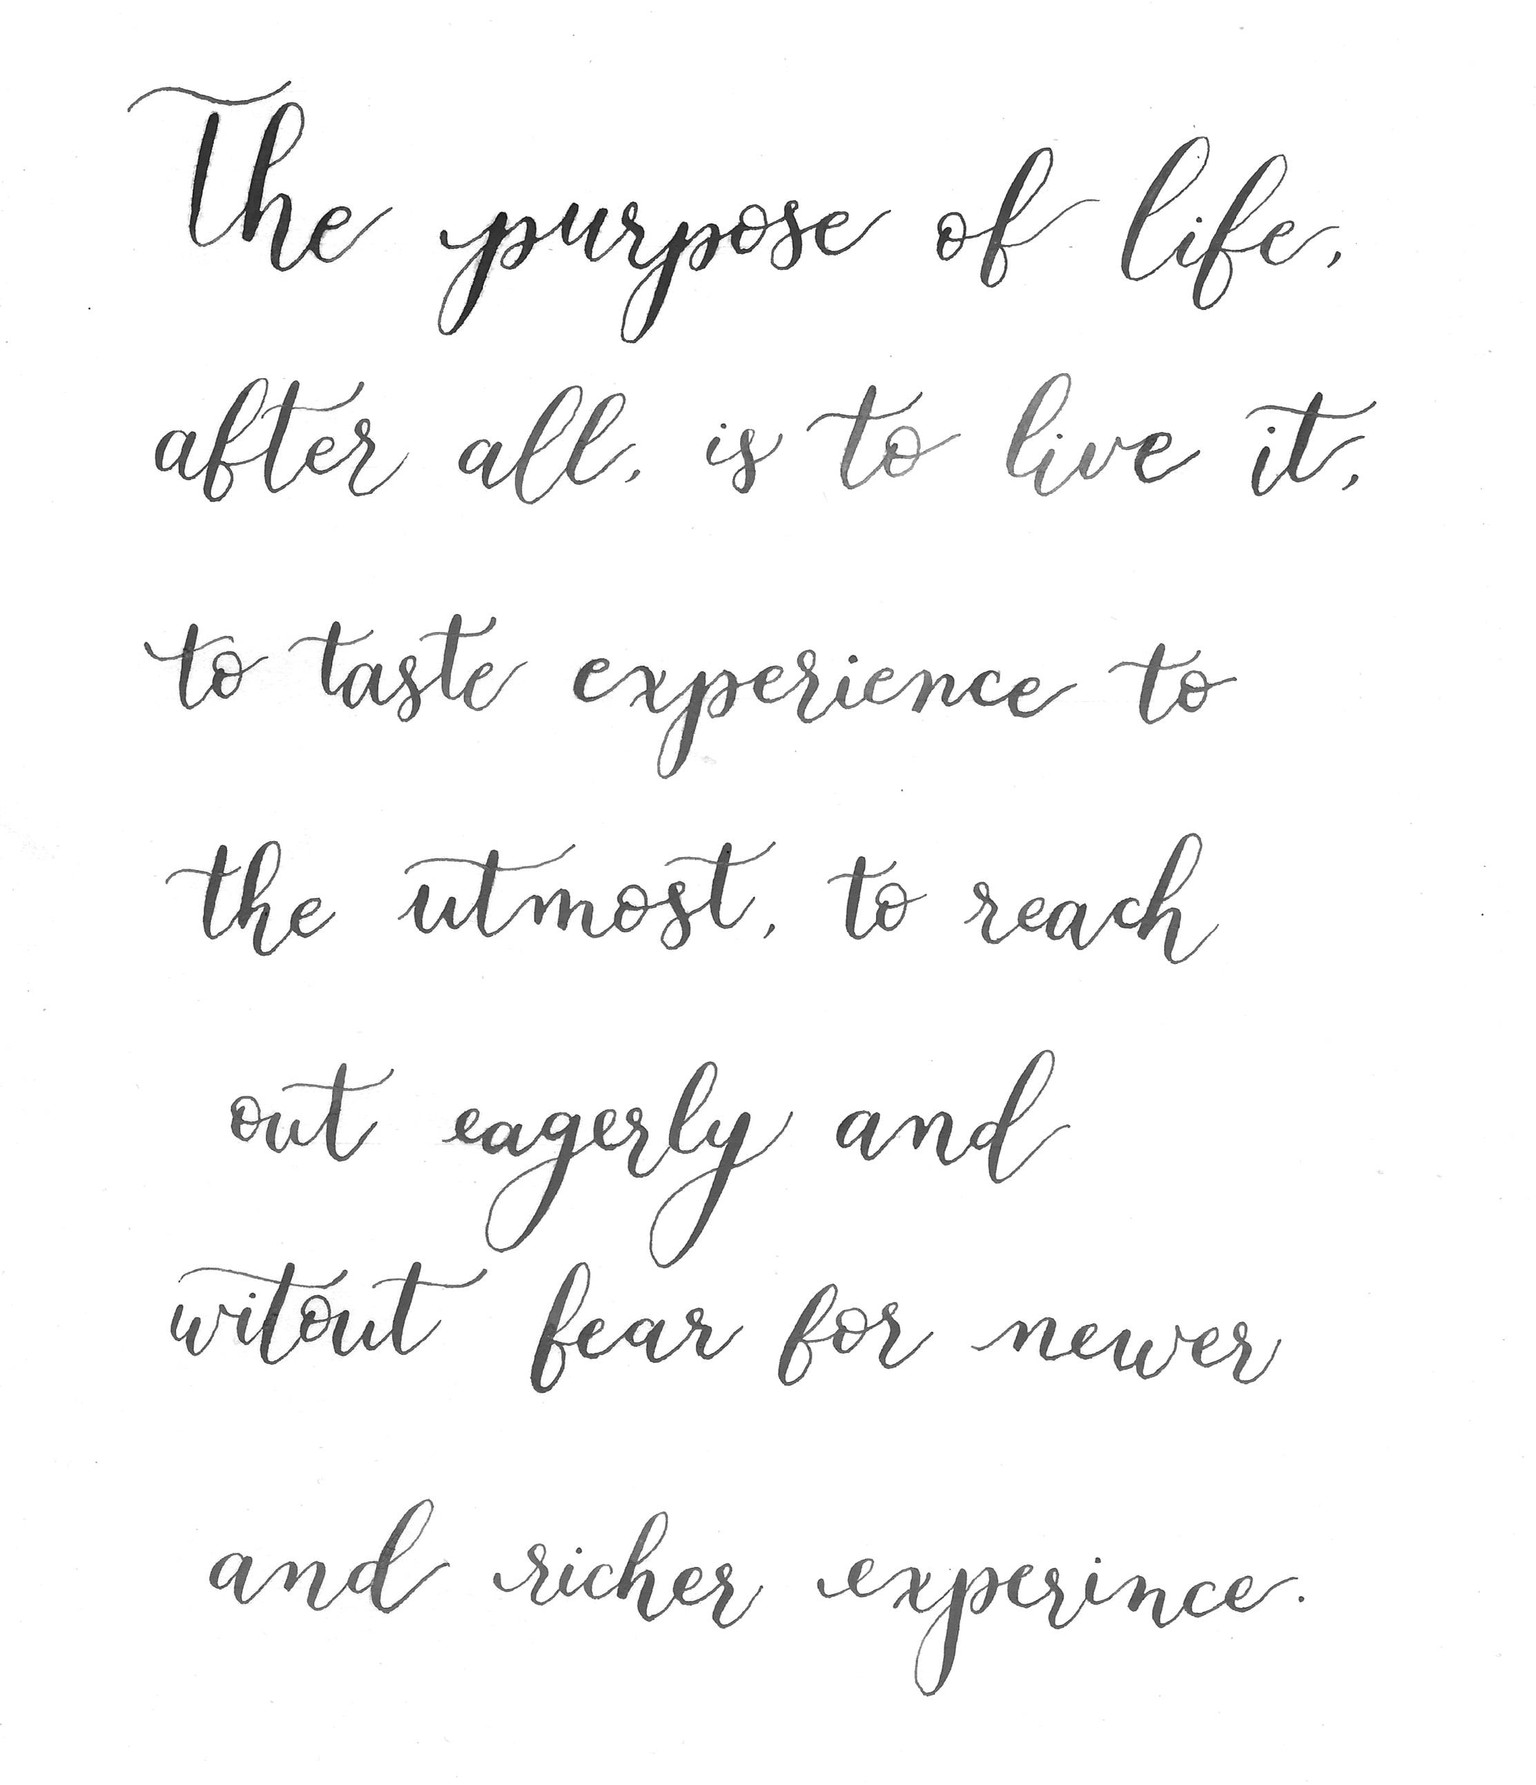 The purpose of life,
after all, is to live it,
to taste experience to
the utmost, to reach
out eagerly and
witout fear for newer
and richer experince.